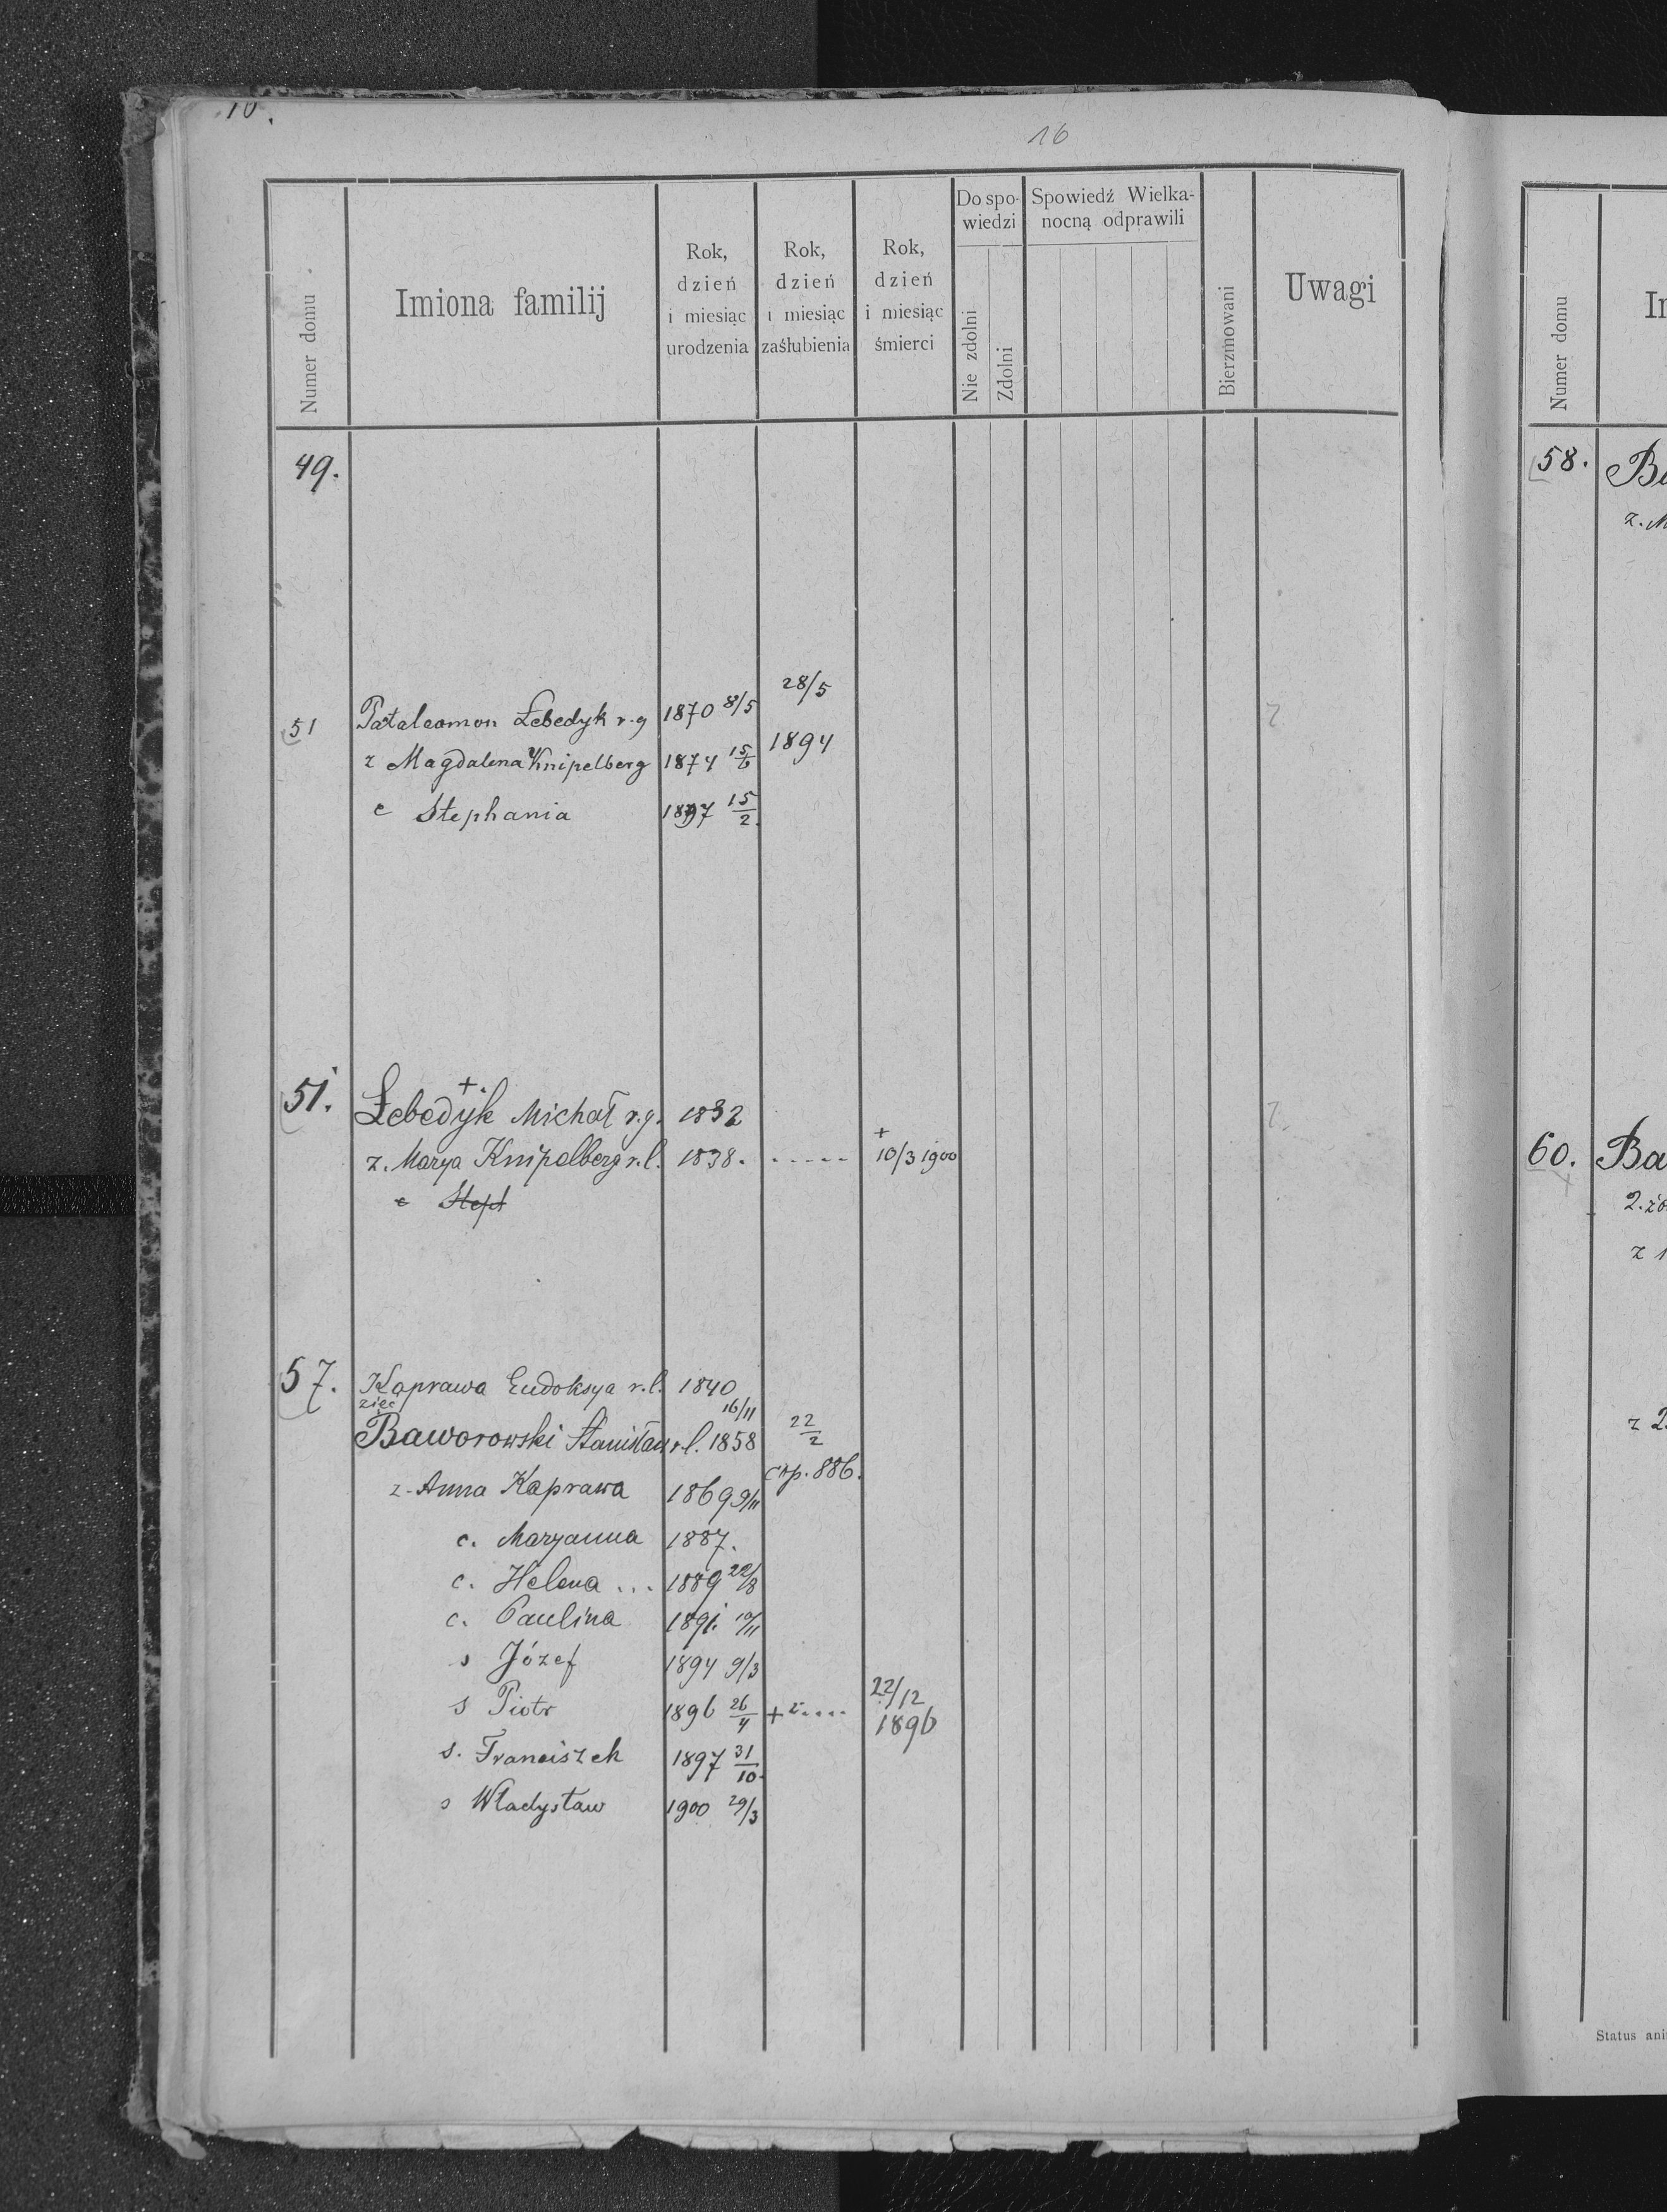 10.
16
Numer domu
Imiona familij
Rok, dzień i miesiąc urodzenia
Rok, dzień i miesiąc zaślubienia
Rok, dzień i miesiąc śmierci
Do spowiedzi
Nie zdolni
Zdolni
Spowiedź Wielkanocną odprawili
Bierzmowani
Uwagi
49.
28/5
51 Pataleamon Łebedyk r.g 1870 8/5
z Magdalena Knipelberg 1874 15/6 1894
c Stephania 1897 15/2.
51. Łebedyk +. Michał r.g. 1832
z. Marya Knipelberg r.l. 1838. ..... + 10/3 1900
c Steph
57. Kaprawa Eudoksya r.l. 1840
zięć 16/11
Baworowski Stanisław r.l. 1858 22/2
z. Anna Kaprawa 1869 9/11 cop. 886.
c. Maryanna 1887.
c. Helena ... 1889 22/8
c. Paulina 1891. 10/11
s Józef 1894 9/3
s Piotr 1896 26/4 + ..... 22/12 1896
s. Franciszek 1897 31/10.
s Władysław 1900 29/3
Numer domu
58.
z.
60. Ba
2. żo
z
z 2.
Status ani